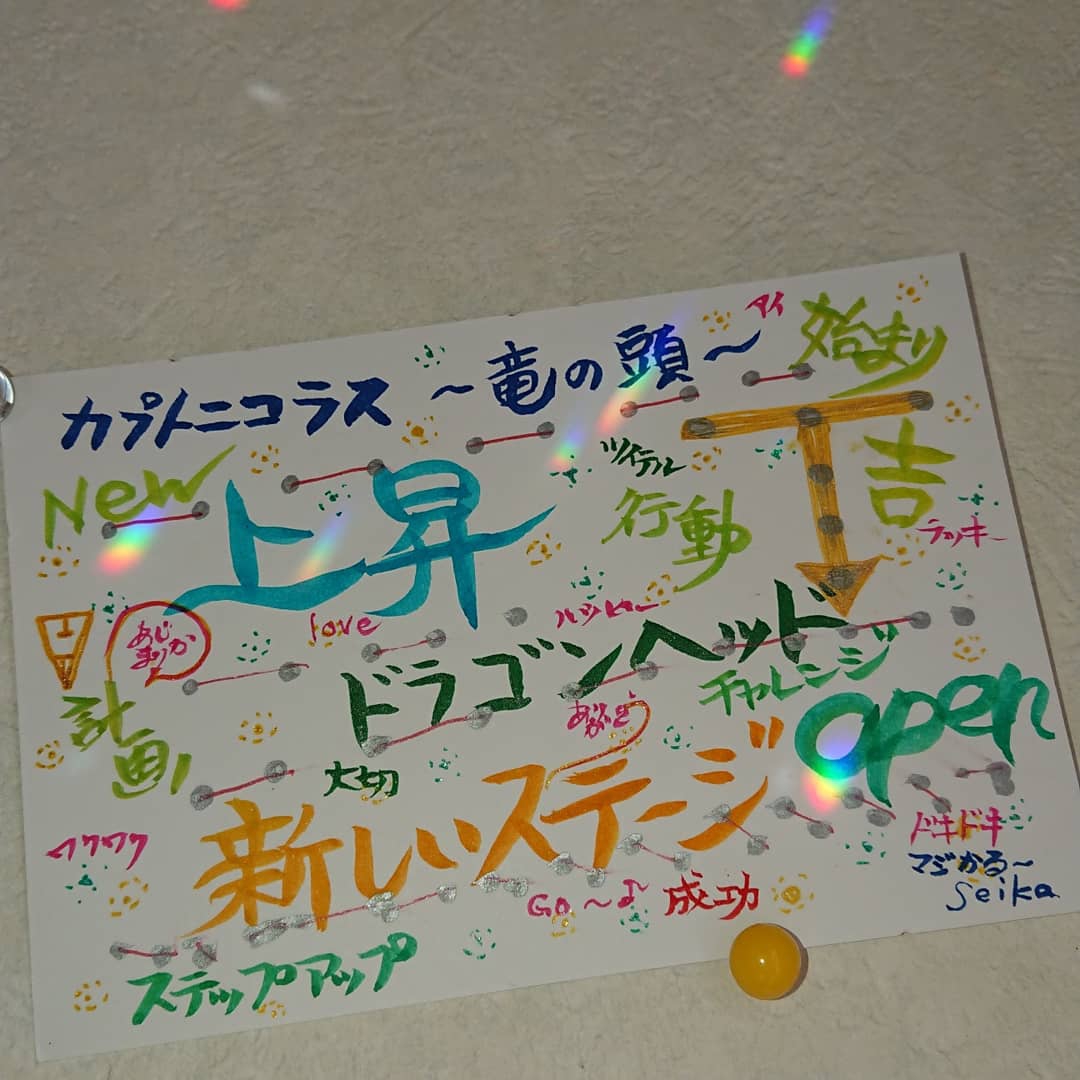 カプトニコラス ～竜の頭～
アイ
始まり
New
上昇
ツイテル
行動
吉
ラッキー
love
ドラゴンヘッド
チャレンジ
open
計画
大切
新しいステージ
ワクワク
ドキドキ
Go～♪
成功
マジかる～
Seika
ステップアップ